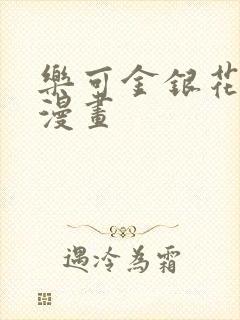 樂可金銀花
漫畫
遇冷為霜